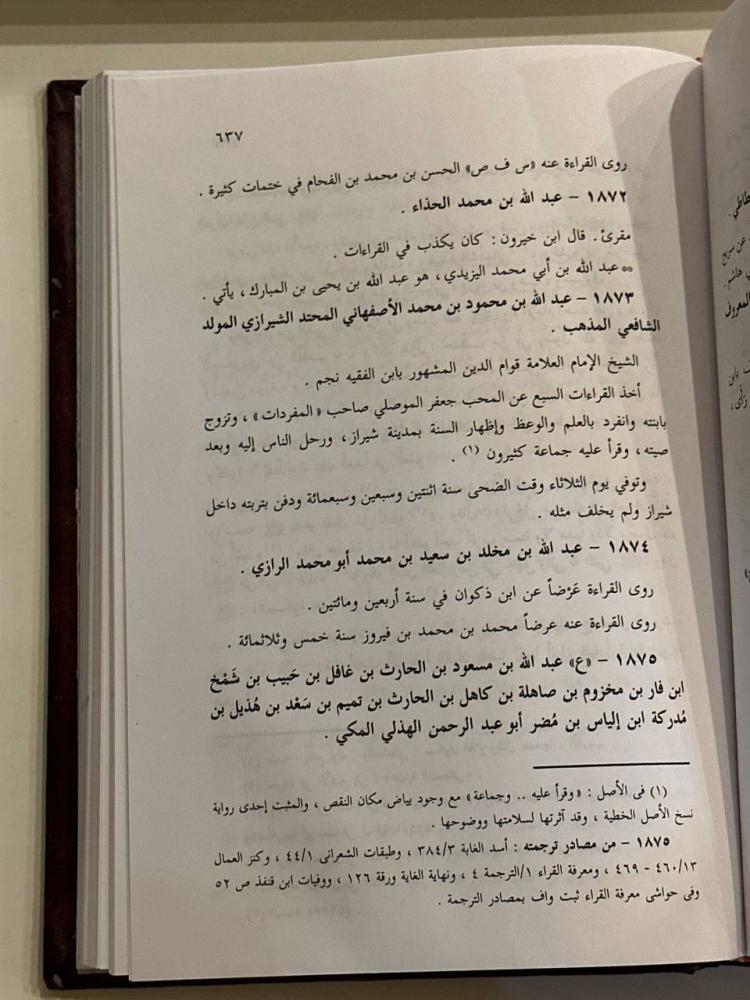 ٦٣٧
روى القراءة عنه «س ف ص» الحسن بن محمد بن الفحام في ختمات كثيرة .
١٨٧٢ – عبد الله بن محمد الحذاء .
مقرئ . قال ابن خيرون : كان يكذب في القراءات .
** عبد الله بن أبي محمد اليزيدي، هو عبد الله بن يحيى بن المبارك ، يأتي .
١٨٧٣ – عبد الله بن محمود بن محمد الأصفهاني المحتد الشيرازي المولد
الشافعي المذهب .
الشيخ الإمام العلامة قوام الدين المشهور بابن الفقيه نجم .
أخذ القراءات السبع عن المحب جعفر الموصلي صاحب «المفردات» ، وتزوج
بابنته وانفرد بالعلم والوعظ وإظهار السنة بمدينة شيراز، ورحل الناس إليه وبعد
صيته، وقرأ عليه جماعة كثيرون (١) .
وتوفي يوم الثلاثاء وقت الضحى سنة اثنتين وسبعين وسبعمائة ودفن بتربته داخل
شيراز ولم يخلف مثله .
١٨٧٤ – عبد الله بن مخلد بن سعيد بن محمد أبو محمد الرازي .
روى القراءة عَرْضاً عن ابن ذكوان في سنة أربعين ومائتين .
روى القراءة عنه عرضاً محمد بن محمد بن فيروز سنة خمس وثلاثمائة .
١٨٧٥ – «ع» عبد الله بن مسعود بن الحارث بن غافل بن حَبيب بن شَمْخ
ابن فار بن مخزوم بن صاهلة بن كاهل بن الحارث بن تميم بن سَعْد بن هُذيل بن
مُدركة ابن إلياس بن مُضر أبو عبد الرحمن الهذلي المكي .
(١) فى الأصل : «وقرأ عليه .. وجماعة» مع وجود بياض مكان النقص ، والمثبت إحدى رواية
نسخ الأصل الخطية ، وقد آثرتها لسلامتها ووضوحها .
١٨٧٥ – من مصادر ترجمته : أسد الغابة ٣٨٤/٣ ، وطبقات الشعرانى ٤٤/١ ، وكنز العمال
٤٦٠/١٣ - ٤٦٩ ، ومعرفة القراء ١/الترجمة ٤ ، ونهاية الغاية ورقة ١٢٦ ، ووفيات ابن قنفذ ص ٥٢
وفى حواشى معرفة القراء ثبت واف بمصادر الترجمة .
طاطي .
عن سريج
ي هاشم .
المعروف
ف بابن
رأى،